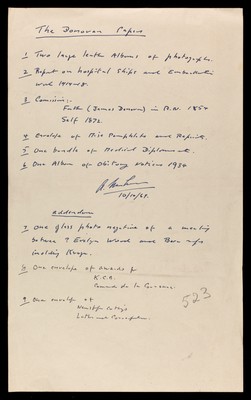 The Donovan Papers
1 Two large leather Albums of photographs.
2 Report on Hospital Ships and Embarkation
work 1914-18.
3 Commissions:-
Father (James Donovan) in R.N. 1854
Self 1872.
4 Envelope of Misc Pamphlets and Reprints.
5 One bundle of Medical Diplomas etc.
6 One Album of Obituary Notices 1934
10/10/67.
Addendum
7 One glass photo negative of a meeting
between ? Evelyn Wood and Boers
including Kruger.
8 One envelope of awards for
K.C.B.
9 One envelope of
Newspaper Cuttings
Letters and
523